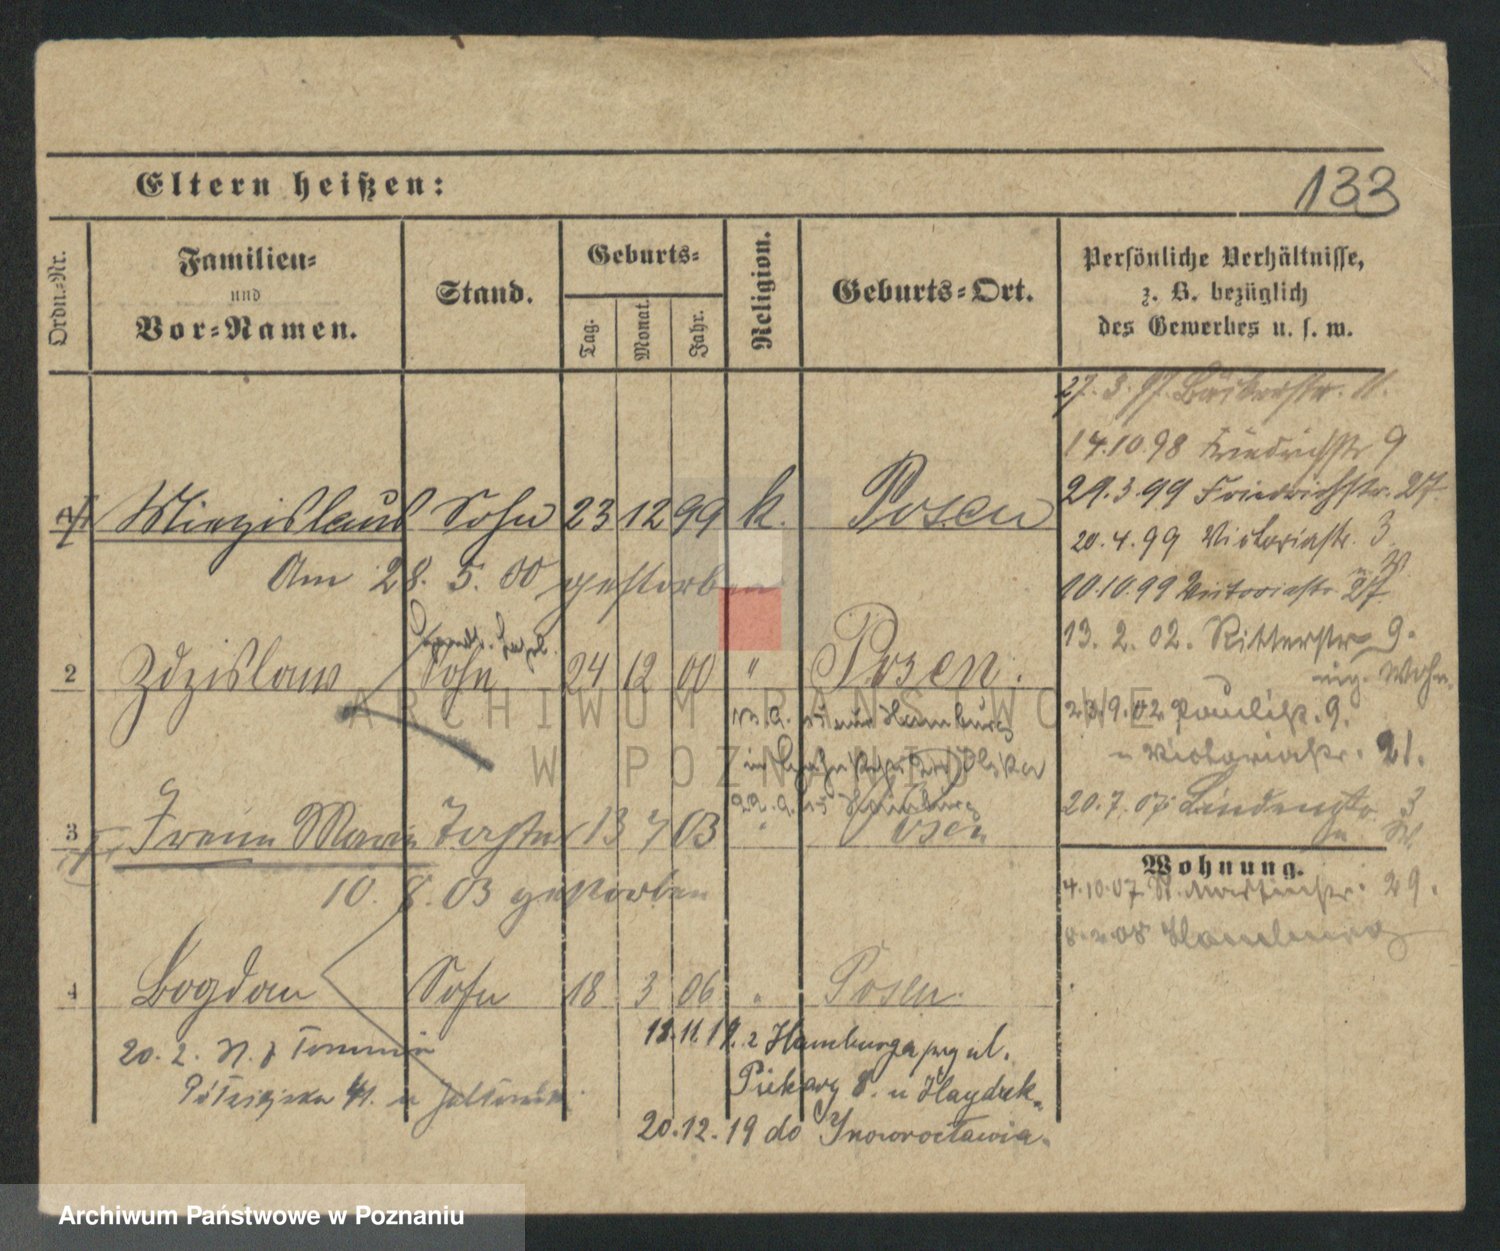 Eltern heißen:
133
Ordn.-Nr.
Familien-
und
Vor-Namen.
Stand.
Geburts-
Tag.
Monat.
Jahr.
Religion.
Geburts-Ort.
Persönliche Verhältnisse,
z. B. bezüglich
des Gewerbes u. s. w.
27. 3. 97. Bäckerstr. 11.
14.10.98 Friedrichstr 9
29.3.99 Friedrichstr. 27.
1 Miezislaus Sohn 23 12 99 k. Posen
20.4.99 Victoriastr. 3
Am 28. 5. 00 gestorben
10.10.99 Victoriastr. 27.
13. 2. 02. Ritterstr 9.
Wohn.
2 Zdzislaw Sohn 24 12 00 " Posen.
ARCHIWUM PAŃSTWOWE
W POZNANIU
Hamburg
23.9.02 Paulistr. 9.
u Victoriastr. 21.
22.9.15 Hamburg
20.7.07. Lindenstr. 3
3 Irene Marie Tochter 13 7 03 " Posen
10. 8. 03 gestorben
Wohnung.
4.10.07 St. Martinstr. 29.
08 Hamburg
4 Bogdan Sohn 18 3 06 " Posen.
20. 2.
18.11.19. z Hamburga przy ul.
Piekary 8. u Hayduk-
20.12.19 do Inowrocławia.
Archiwum Państwowe w Poznaniu